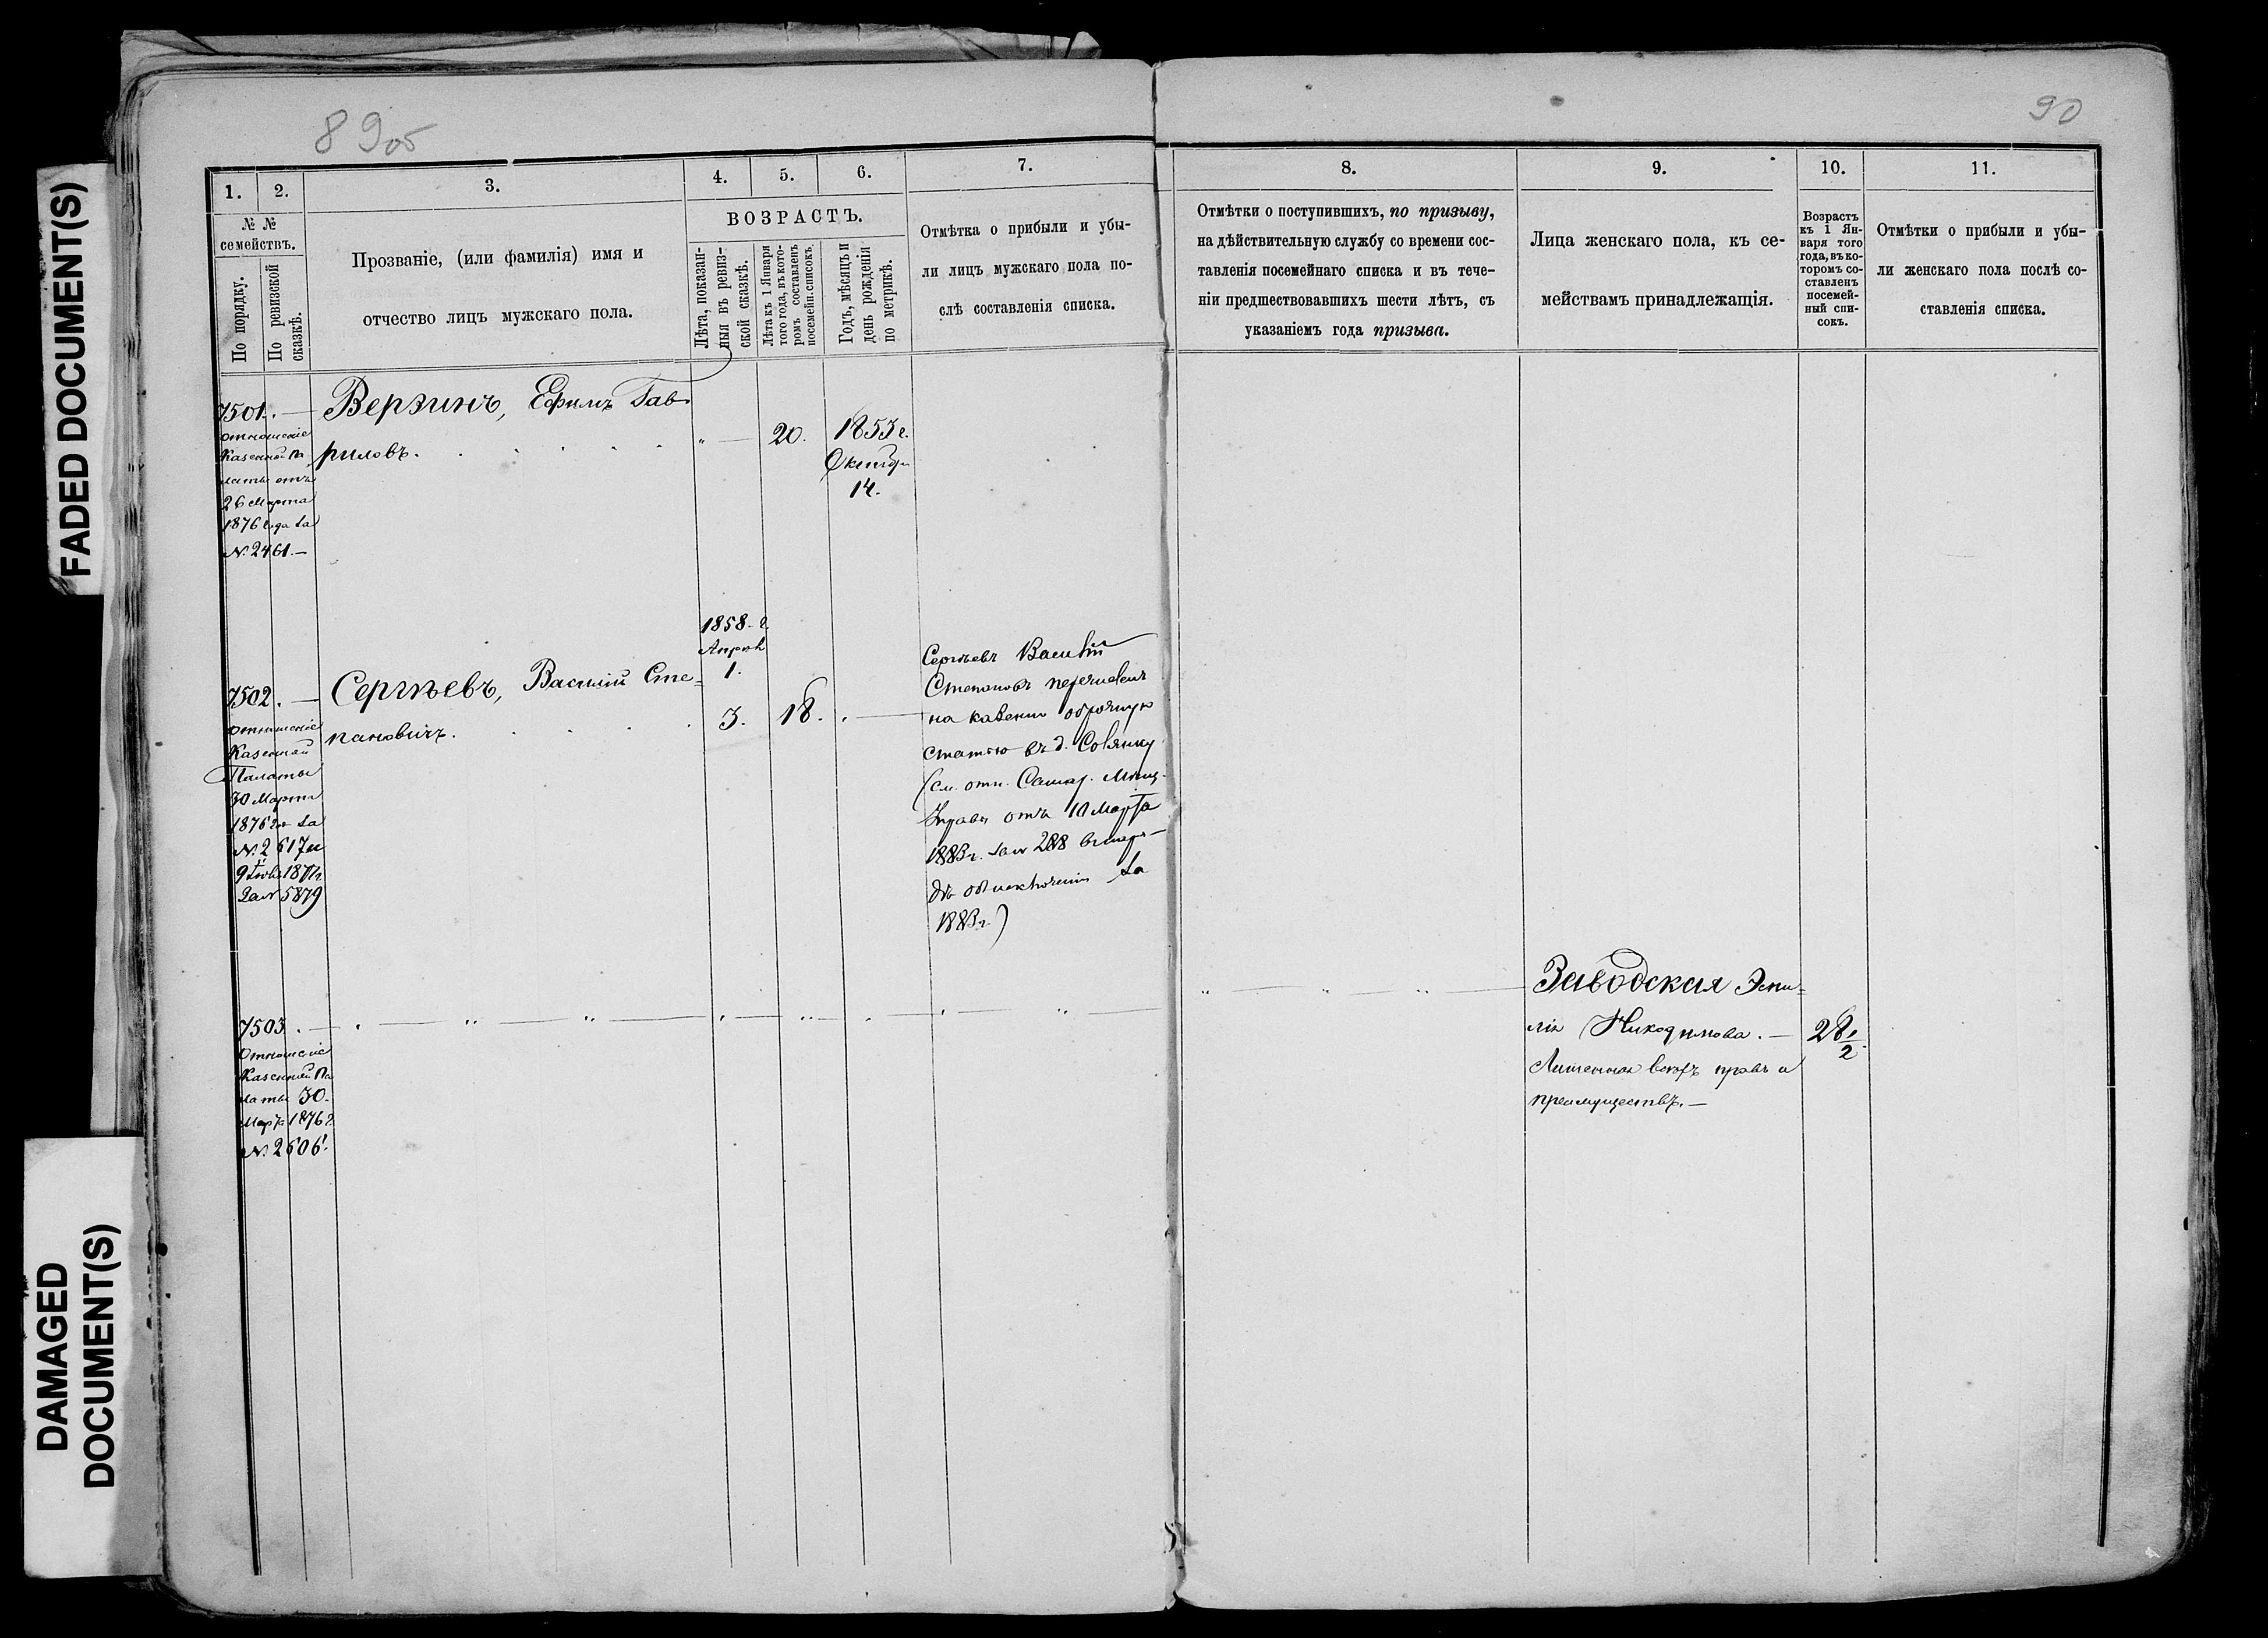 FADED DOCUMENT(S)
DAMAGED
DOCUMENT(S)
89об
90
1.
2.
3.
4.
5.
6.
7.
8.
9.
10.
11.
№ №
семействъ.
По порядку.
По ревизской
сказкѣ.
Прозваніе, (или фамилія) имя и
отчество лицъ мужскаго пола.
ВОЗРАСТЪ.
Лѣта, показан-
ныя въ ревиз-
ской сказкѣ.
Лѣта къ 1 Января
того года, въ кото-
ромъ составленъ
посемейн. списокъ.
Годъ, мѣсяцъ и
день рожденія
по метрикѣ.
Отмѣтка о прибыли и убы-
ли лицъ мужскаго пола по-
слѣ составленія списка.
Отмѣтки о поступившихъ, по призыву,
на дѣйствительную службу со времени сос-
тавленія посемейнаго списка и въ тече-
ніи предшествовавшихъ шести лѣтъ, съ
указаніемъ года призыва.
Лица женскаго пола, къ се-
мействамъ принадлежащія.
Возрастъ
къ 1 Ян-
варя того
года, въ ко-
торомъ со-
ставленъ
посемей-
ный спи-
сокъ.
Отмѣтки о прибыли и убы-
ли женскаго пола послѣ со-
ставленія списка.
7501. —
отношеніе
Казенной Па
латы отъ
26 Марта
1876 года за
№ 2461. —
Верзинъ, Ефимъ Гав-
риловъ.
" —
20.
1853 г.
Октября
14.
7502. —
отношеніе
Казенной
Палаты
30 Марта
1876 г. за
№ 2617 и
9
за № 5879
Сергѣевъ, Василій Сте=
пановичъ.
1858 г.
Апрѣля
1.
3.
18.
Сергѣевъ Василій
Степановъ перечисленъ
на казенно оброчную
статью въ д. Солянку
(см. отн. Самар. Мѣщ.
Управы отъ 10 Марта
1883 г. за № 288 въ наря-
дѣ объ исключеніи за
1883 г.)
7503. —
Отношеніе
Казенной Па
латы 30
Марта 1876 г.
№ 2606.
Заводская Эми=
лія Никодимова. —
Лишенная всѣхъ правъ и
преимуществъ. —
28 1/2.